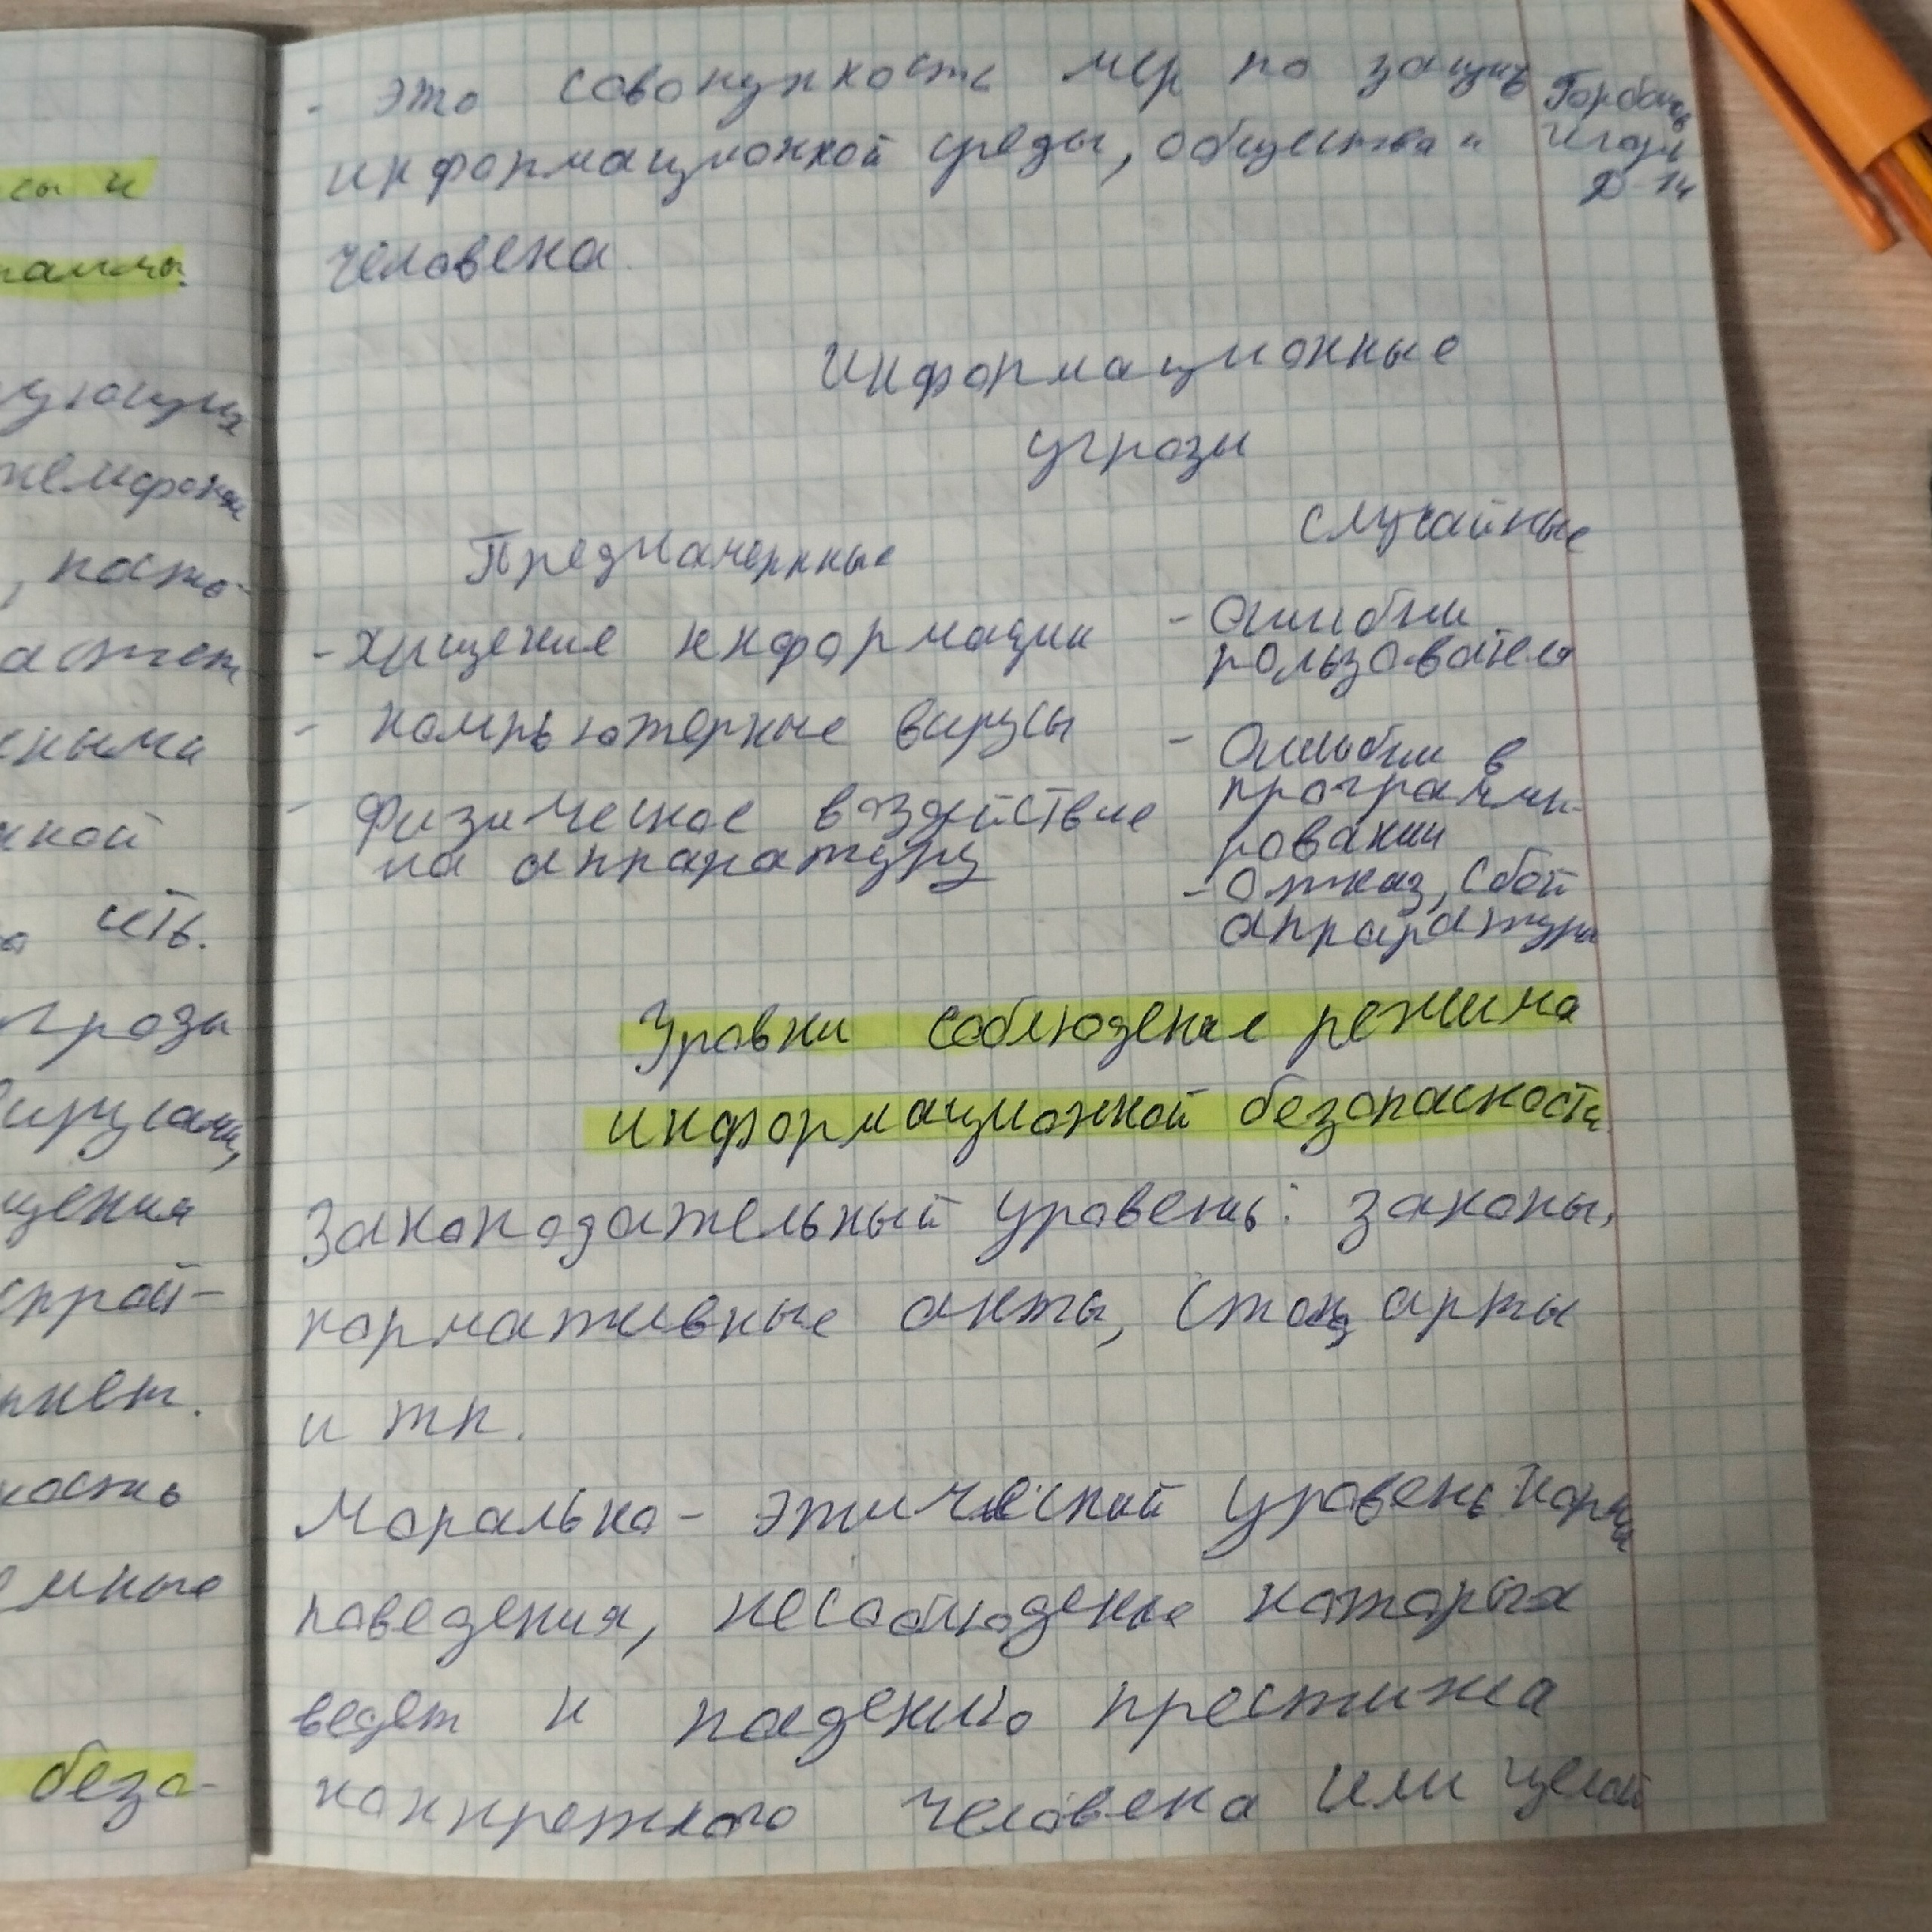 сы и
граммы.
мост-
ными
ной
ить.
угрозы
вирусами,
щения
рнет.
ность
емные
безо-
- это совокупность мер по защите
информационной среды, общества и
человека.
Игорь
Д-14
Информационные
угрозы
Преднамеренные
- хищение информации
- компьютерные вирусы
- физическое воздействие
на аппаратуру
случайные
- Ошибки
пользователя
- Ошибки в
программи-
ровании
- Отказ, сбой
аппаратуры
Уровни соблюдения режима
информационной безопасности.
Законодательный уровень: законы,
нормативные акты, стандарты
и тп.
Морально-этический уровень: нормы
поведения, несоблюдение которых
ведет к падению престижа
конкретного человека или целой